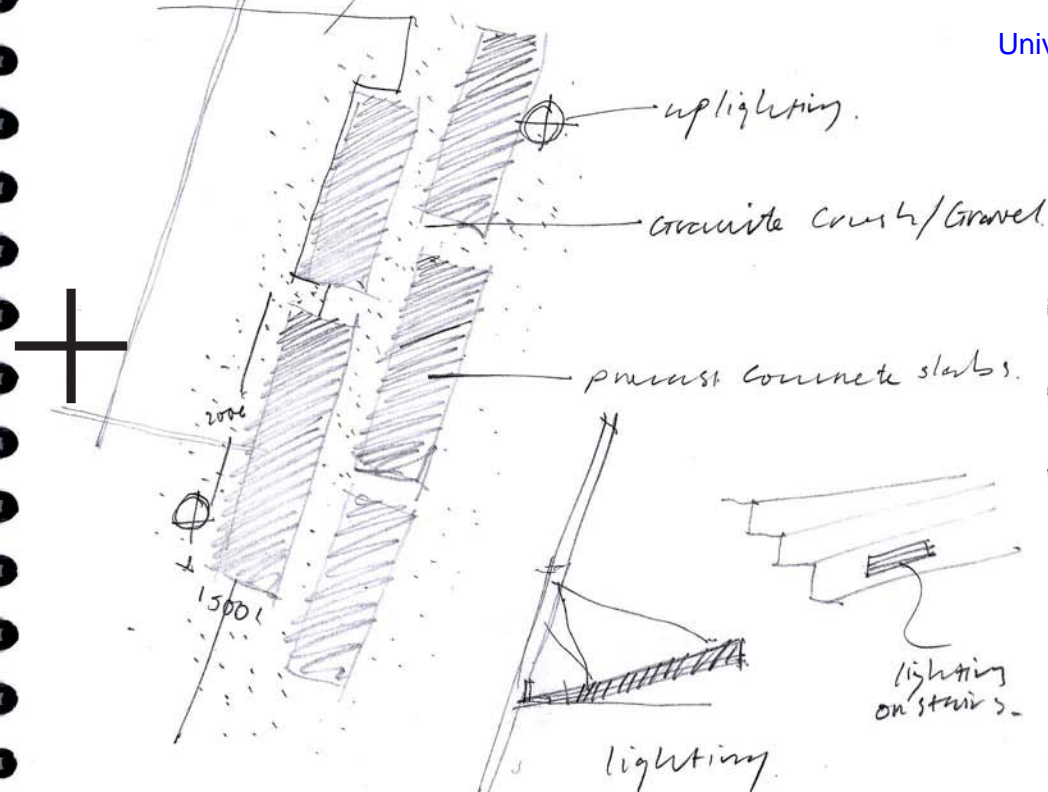 Univ
uplighting.
Granite Crush/Gravel
precast concrete slabs.
1500
lighting
on stairs.
lighting